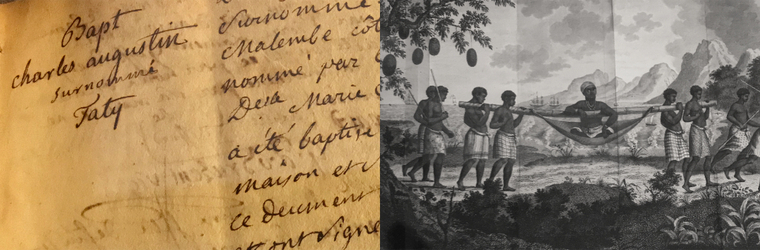 Bapt
charles augustin
surnommé
Taty
surnommé
Malembe côt
nommé par l
Delle Marie C
a été baptisé
maison et
ce document
et ont signé